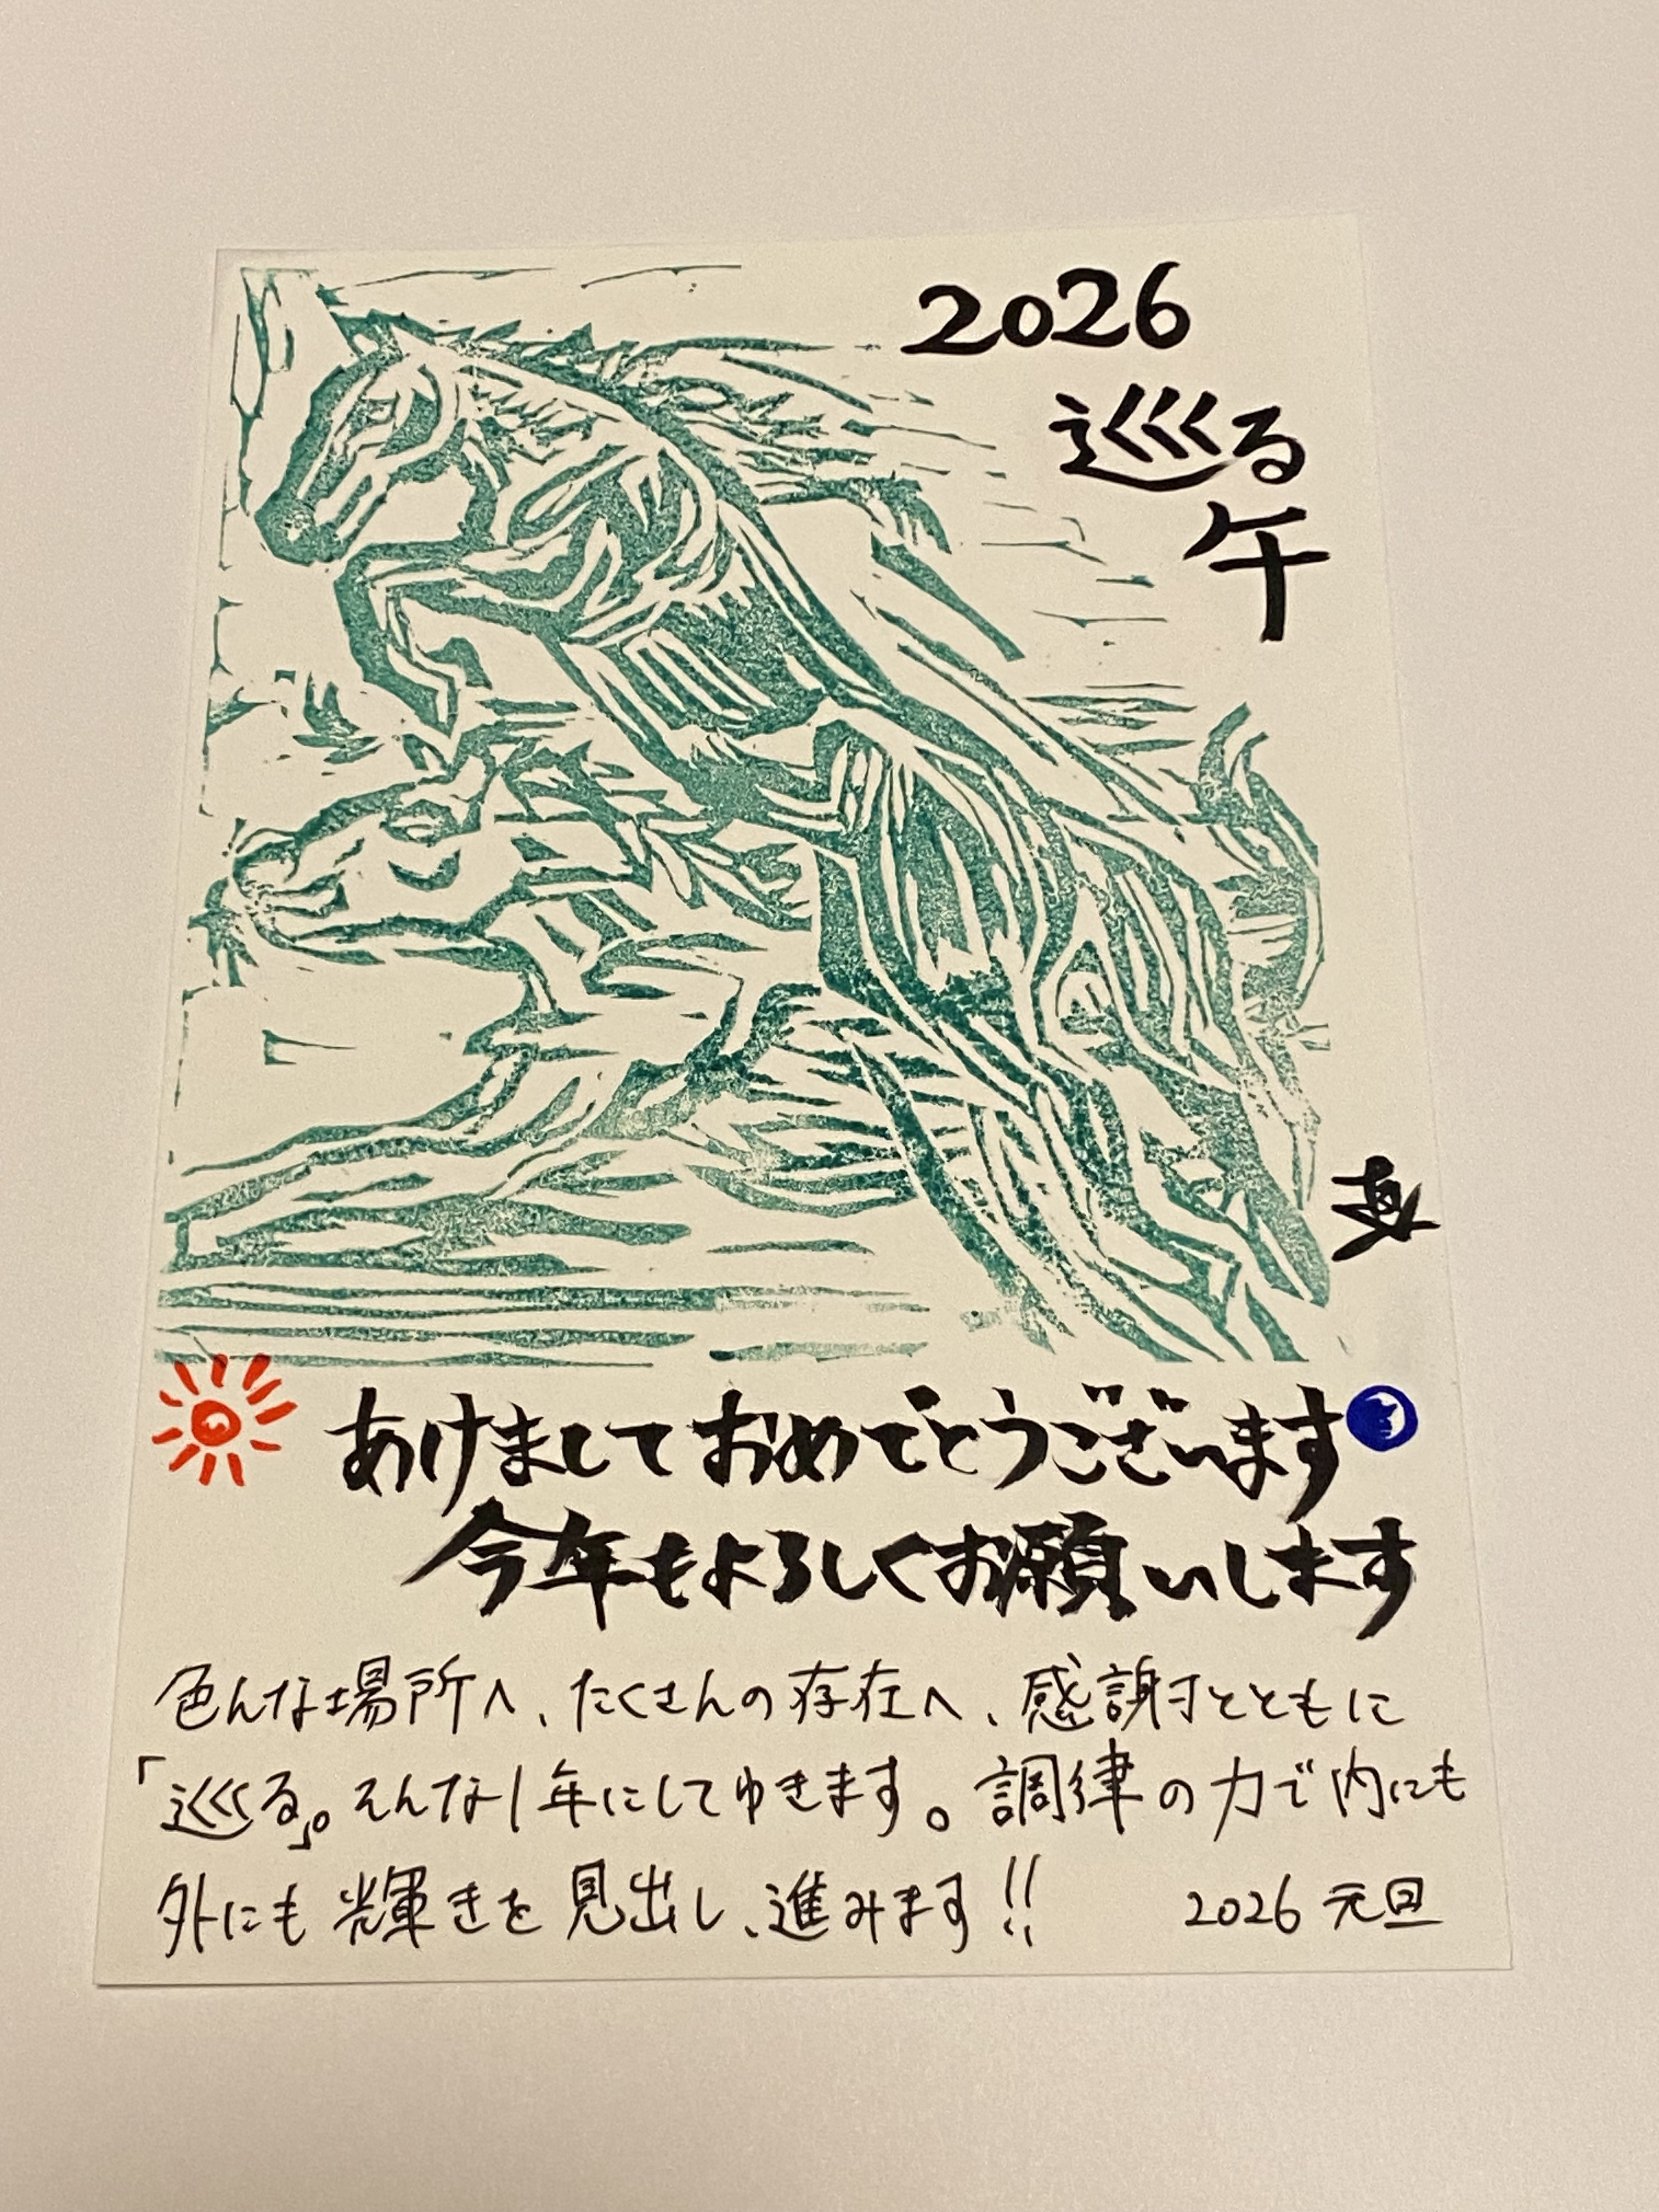 2026
巡る
午
あけましておめでとうございます
今年もよろしくお願いします
色んな場所へ、たくさんの存在へ、感謝とともに
「巡る」。そんな1年にしてゆきます。調律の力で内にも
外にも輝きを見出し、進みます!!
2026 元旦